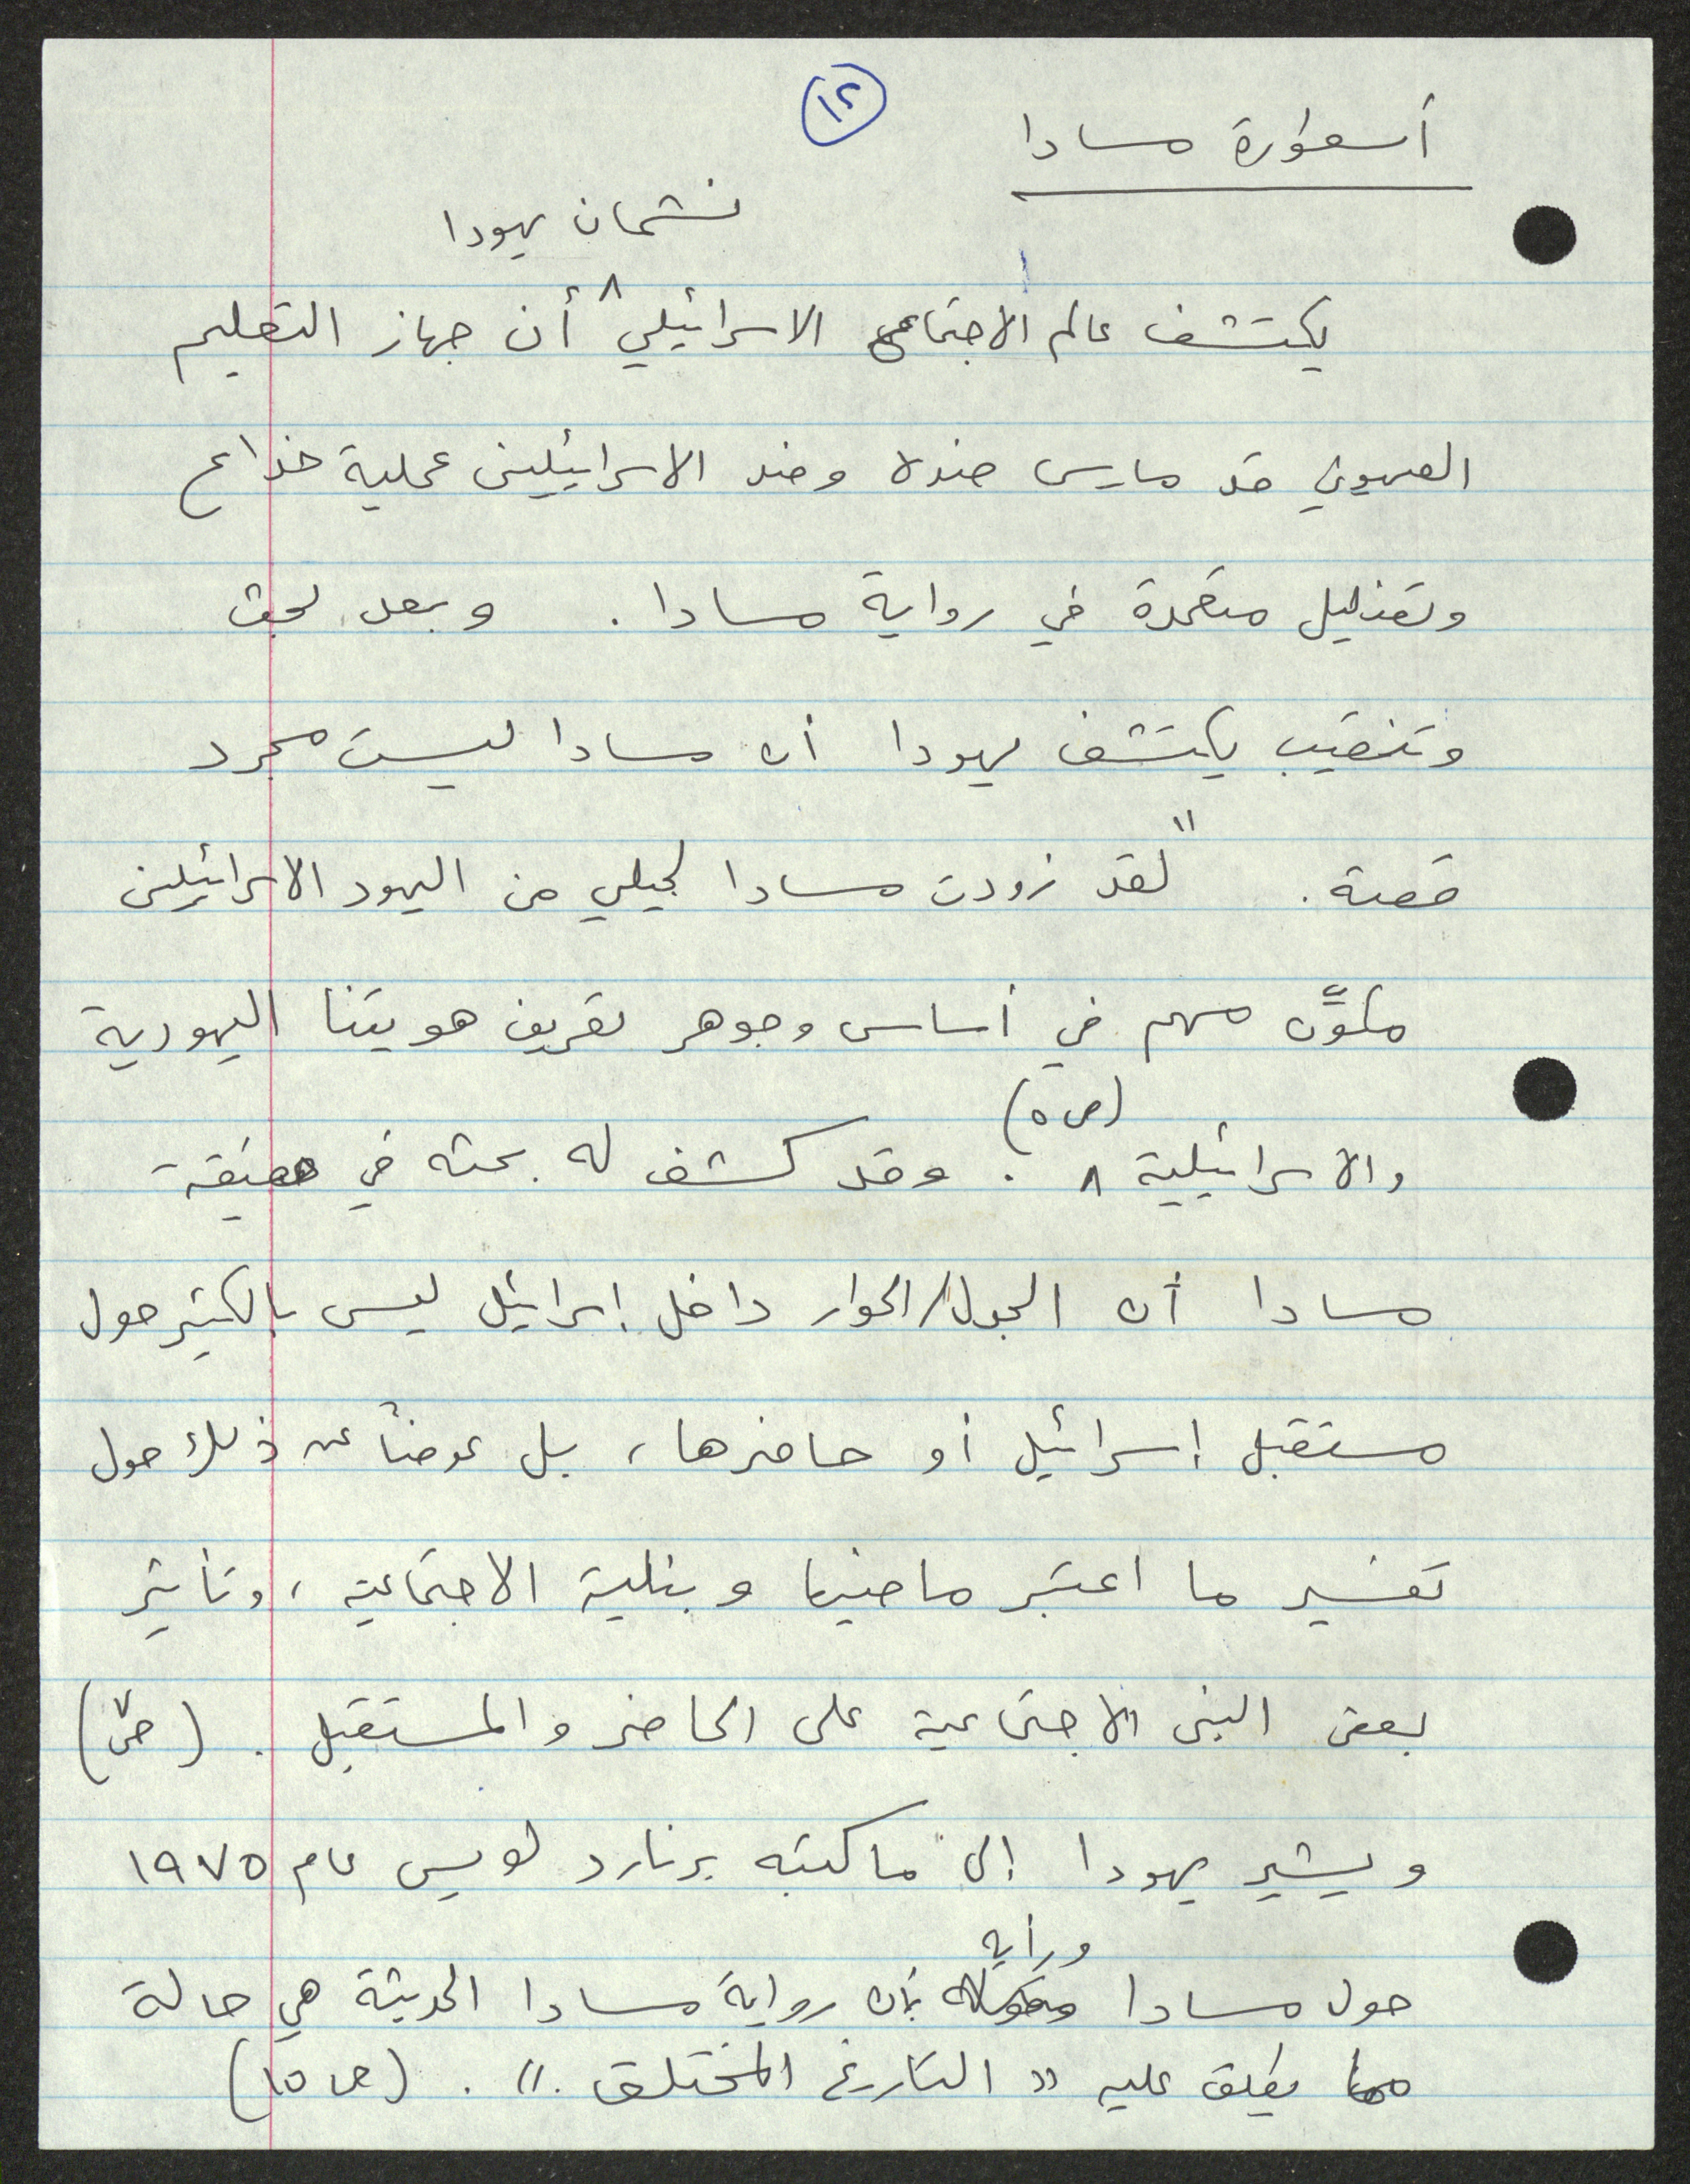 ١٢
أسطورة مسادا
نشمان يهودا
يكتشف عالم الاجتماع الاسرائيلي أن جهاز التعليم
الصهيوني قد مارس ضده وضد الاسرائيليين عملية خداع
وتضليل متعمدة في رواية مسادا. وبعد بحث
وتنقيب يكتشف يهودا أن مسادا ليست مجرد
قصة. "لقد زودت مسادا لجيلي من اليهود الاسرائيلين
مكوّن مهم في أساس وجوهر تعريف هويتنا اليهودية
(ص ٥)
والاسرائيلية. وقد كشف له بحثه في حقيقة
مسادا أن الجدل/الحوار داخل إسرائيل ليس بالكثير حول
مستقبل إسرائيل أو حاضرها، بل عوضاً عن ذلك حول
تفسير ما اعتبر ماضيها وبنيته الاجتماعية، وتأثير
بعض البنى الاجتماعية على الحاضر والمستقبل. (ص ٧)
ويشير يهودا إلى ما كتبه برنارد لويس عام ١٩٧٥
ورأيه
حول مسادا بأن رواية مسادا الحديثة هي حالة
مما يطلق عليه "التاريخ المختلق.". (ص ١٥)